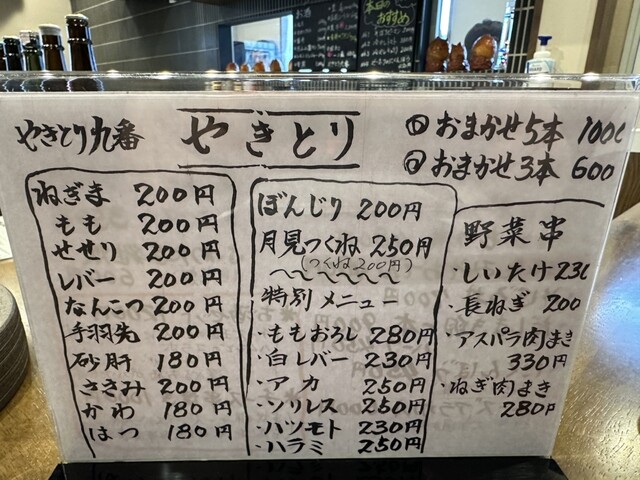 本日の
おすすめ
やきとり九番
やきとり
① おまかせ5本 1000
② おまかせ3本 600
ねぎま 200円
もも 200円
せせり 200円
レバー 200円
なんこつ 200円
手羽先 200円
砂肝 180円
ささみ 200円
かわ 180円
はつ 180円
ぼんじり 200円
月見つくね 250円
(つくね200円)
特別メニュー
・ももおろし 280円
・白レバー 230円
・アカ 250円
・ソリレス 250円
・ハツモト 230円
・ハラミ 250円
野菜串
・しいたけ 230
・長ねぎ 200
・アスパラ肉まき
330円
・ねぎ肉まき
280円